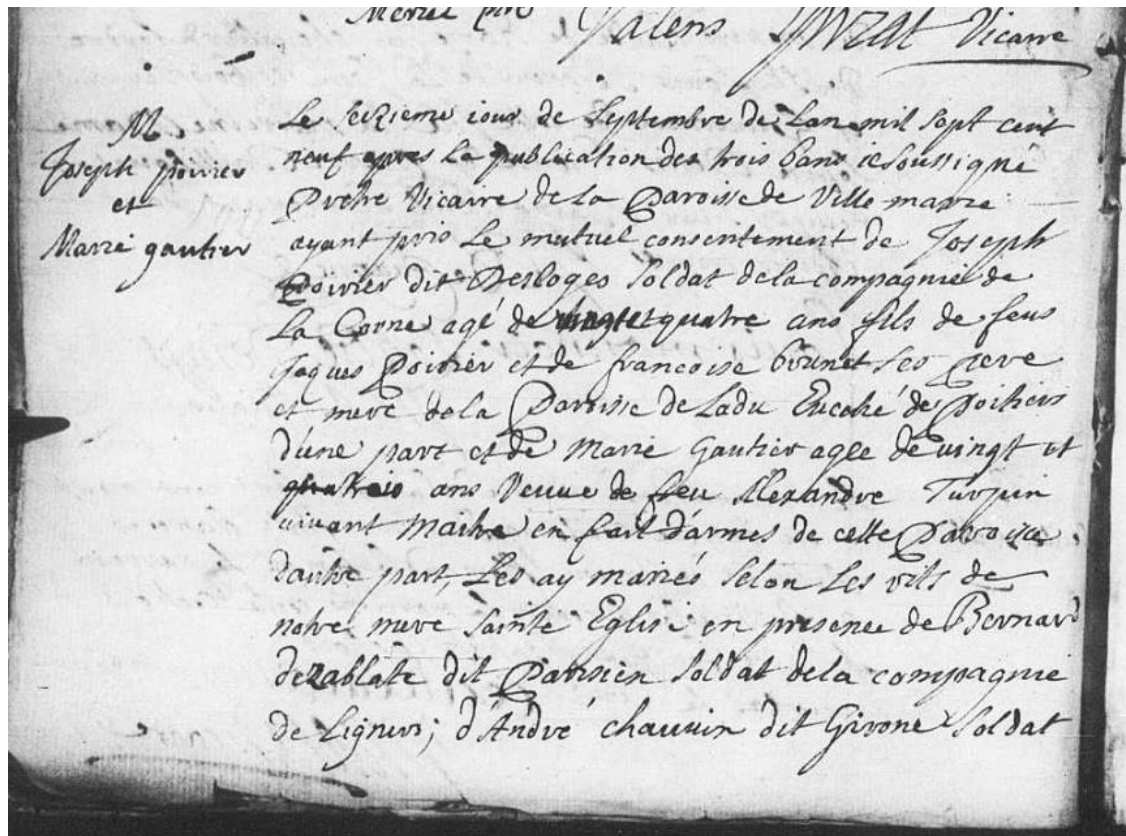 Meriel ptre Valens Juzat Vicaire
M
Joseph poirier
et
Marie gautier
Le seizieme iour de Septembre de Lan mil Sept cent
neuf apres La publication des trois bans ie Soussigné
Pretre Vicaire de La Paroisse de Ville marie
ayant pris Le mutuel consentement de Joseph
Poirier dit Desloges Soldat de la compagnie de
La Corne agé de vingt et quatre ans fils de feus
Jaques Poirier et de francoise brunet Ses pere
et mere de la Paroisse de Ladu Eueché de Poitiers
d'une part et de Marie Gautier agee de uingt et
quatre ans Veuue de feu Alexandre Turpin
uiuant Maitre en fait d'armes de cette Paroisse
dautre part, Les ay mariés Selon Les rits de
notre mere Sainte Eglise en presence de Bernard
dezablate dit Parisien Soldat de la compagnie
de Ligneris; d'André chauuin dit Girone Soldat